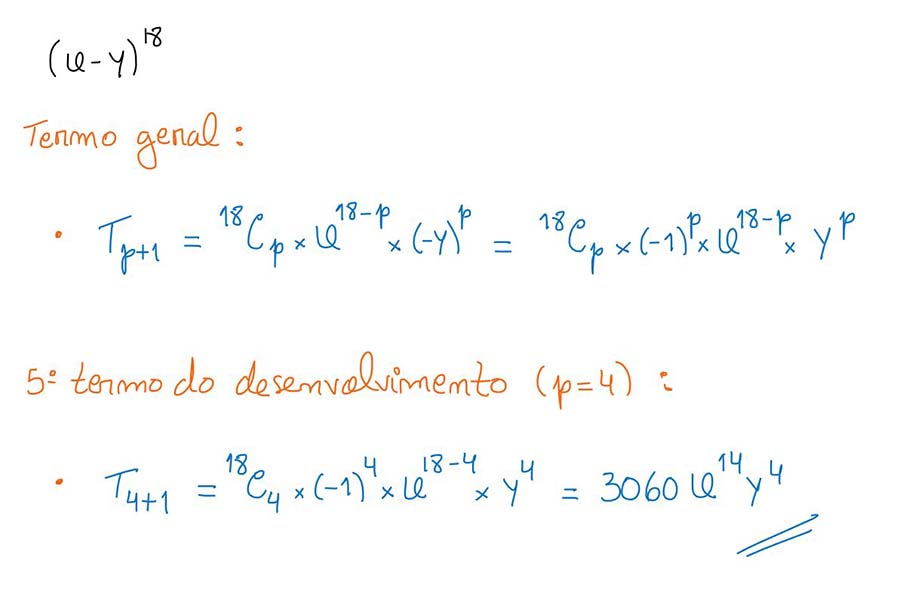 (x-y)^18
Termo geral:
• T_{p+1} = ^{18}C_p × x^{18-p} × (-y)^p = ^{18}C_p × (-1)^p × x^{18-p} × y^p
5º termo do desenvolvimento (p=4):
• T_{4+1} = ^{18}C_4 × (-1)^4 × x^{18-4} × y^4 = 3060 x^{14} y^4